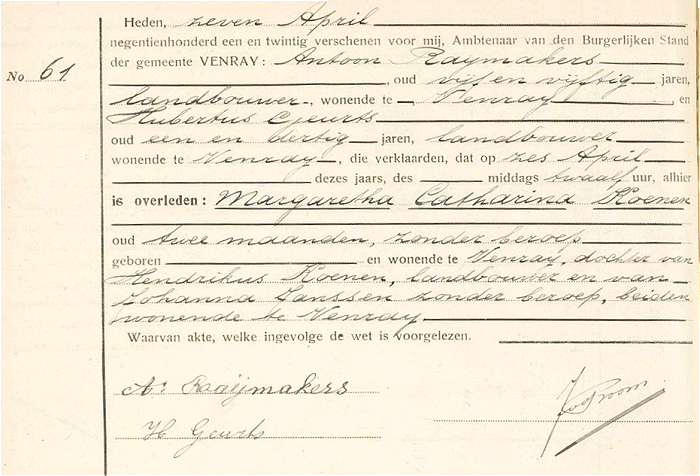 Heden, zeven April
negentienhonderd een en twintig verschenen voor mij, Ambtenaar van den Burgerlijken Stand
der gemeente VENRAY: Antoon Raymakers
No 61
, oud vijf en vijftig jaren,
landbouwer, wonende te Venray en
Hubertus Geurts
oud een en dertig jaren, landbouwer
wonende te Venray, die verklaarden, dat op zes April
dezes jaars, des middags twaalf uur, alhier
is overleden: Margaretha Catharina Koenen
oud twee maanden, zonder beroep
geboren en wonende te Venray, dochter van
Hendrikus Koenen, landbouwer en van
Johanna Janssen zonder beroep, beiden
wonende te Venray
Waarvan akte, welke ingevolge de wet is voorgelezen.
As Raaijmakers
H Geurts